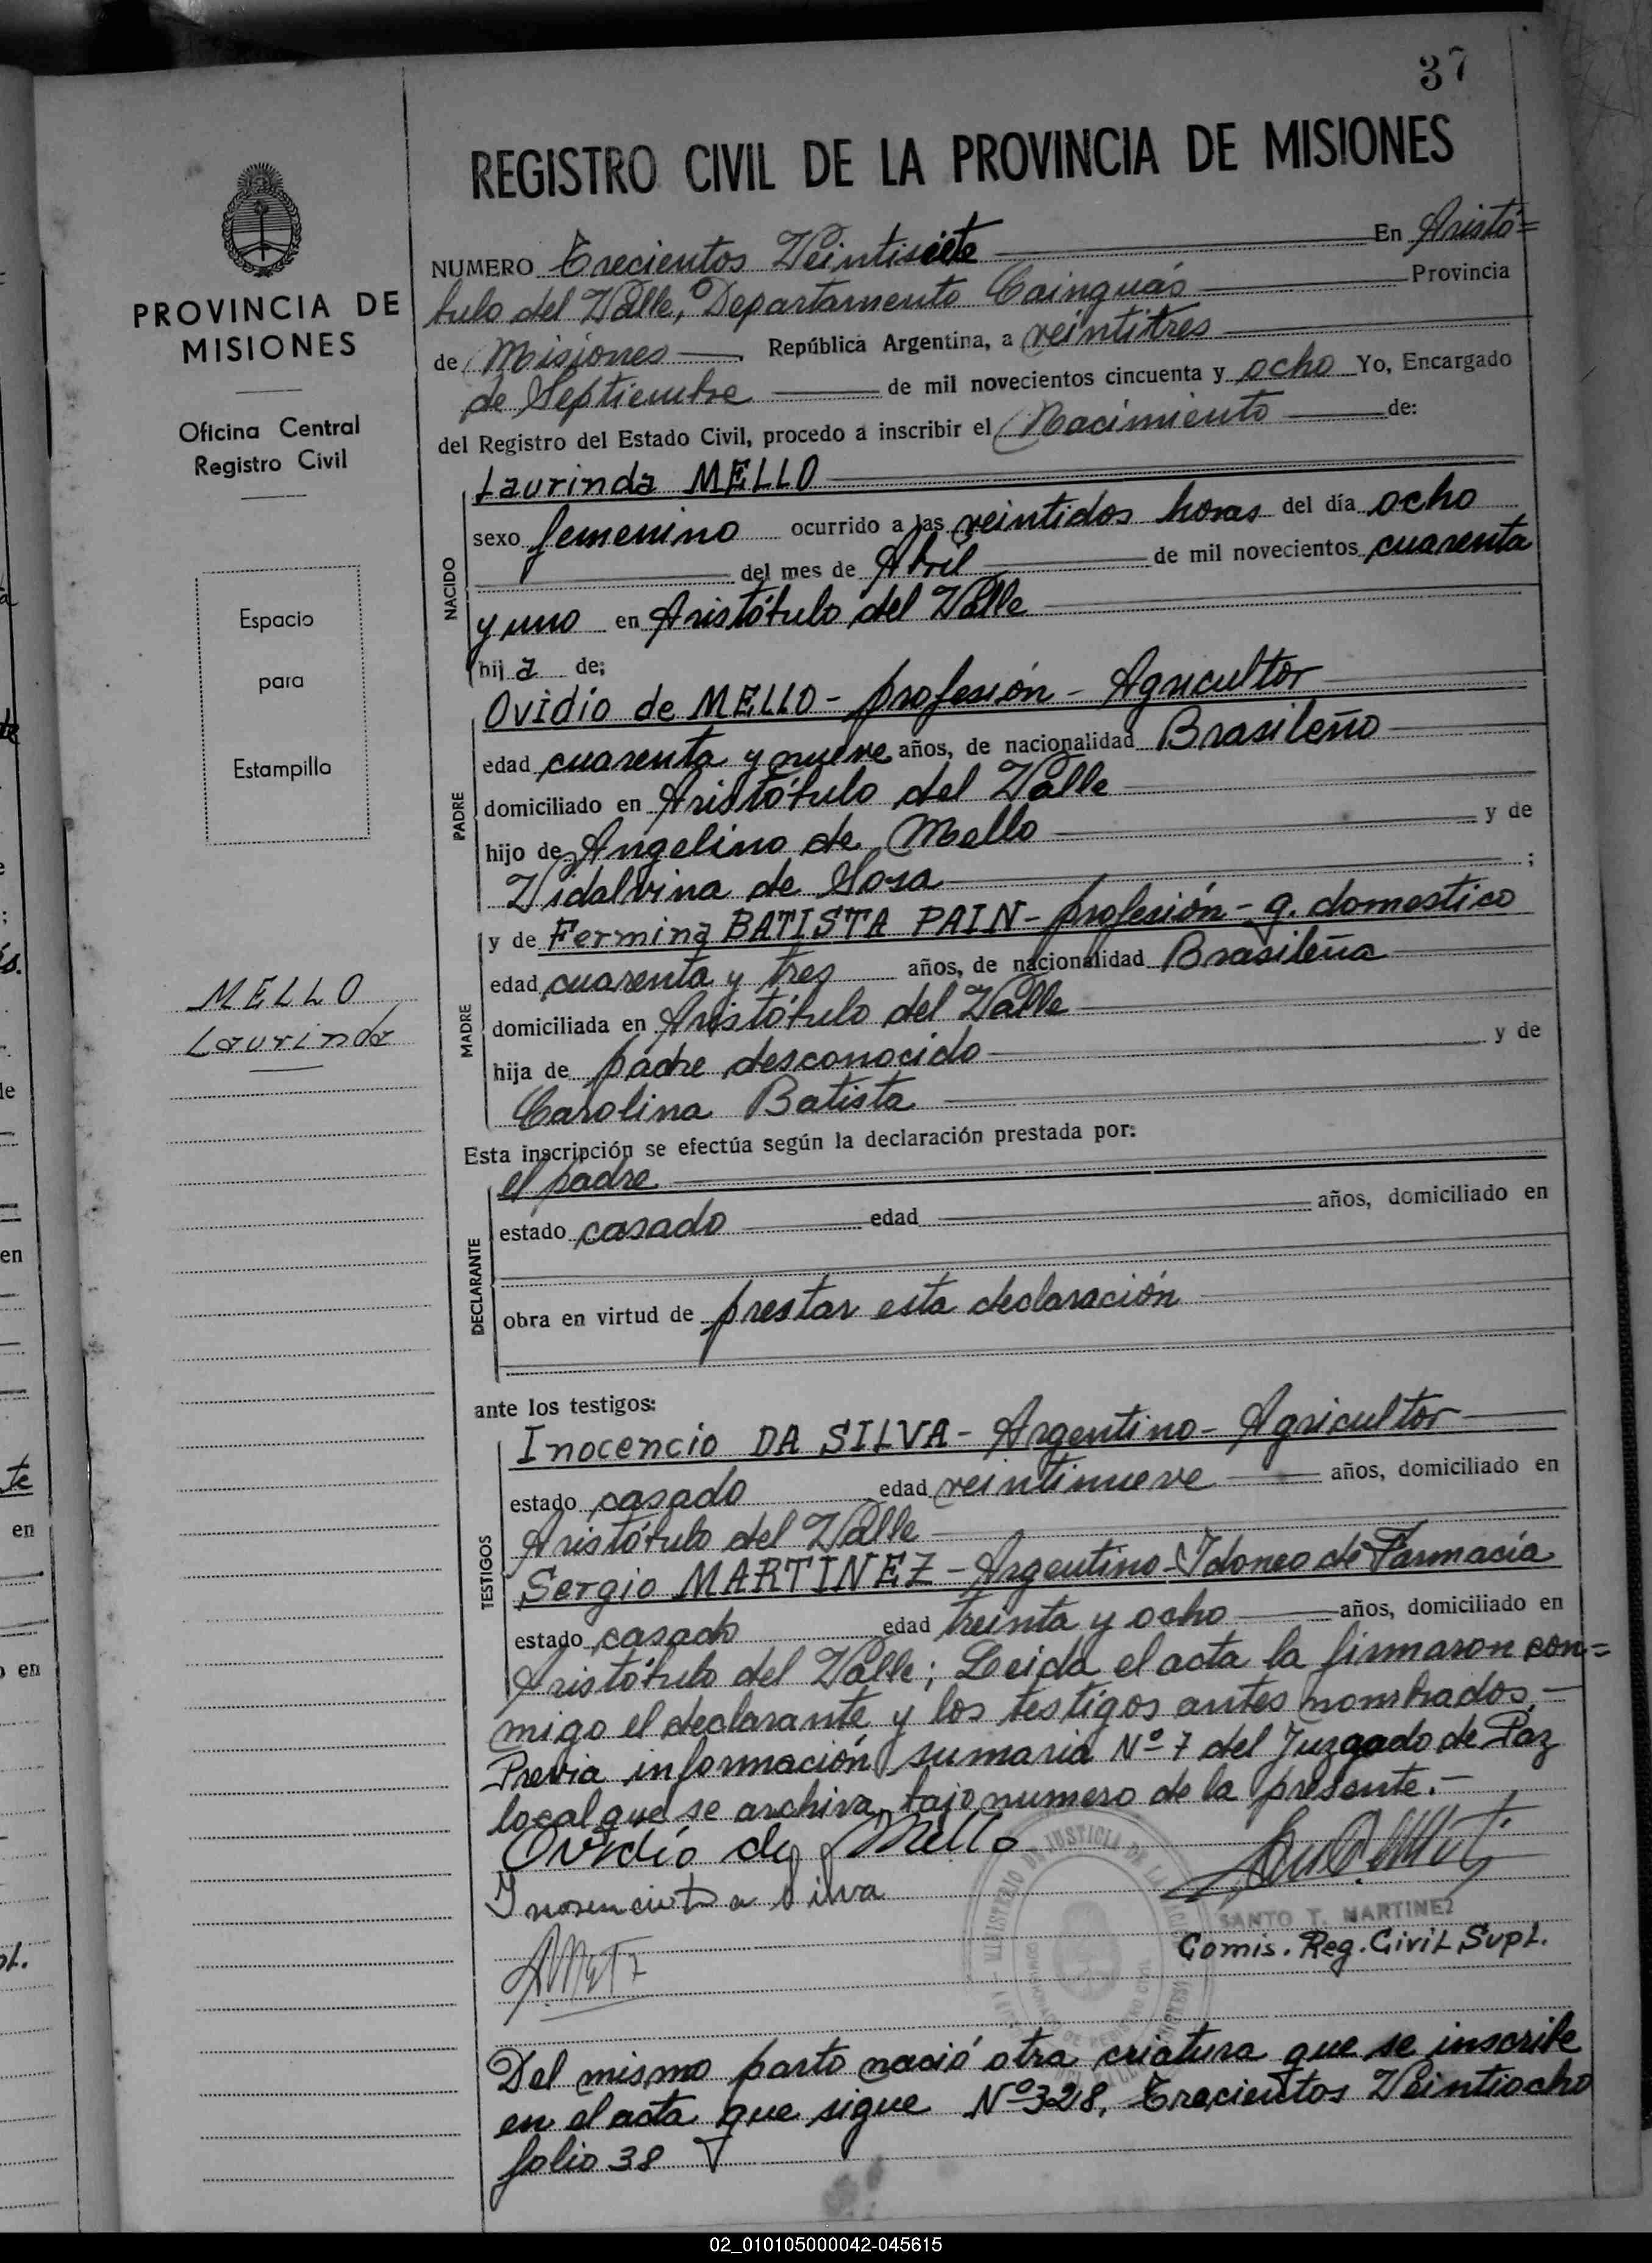 37
REGISTRO CIVIL DE LA PROVINCIA DE MISIONES
PROVINCIA DE
MISIONES
Oficina Central
Registro Civil
Espacio
para
Estampilla
MELLO
Laurinda
NUMERO Trecientos Veintisiete En Aristó=
tulo del Valle, Departamento Cainguás Provincia
de Misiones República Argentina, a veintitres
de Septiembre de mil novecientos cincuenta y ocho Yo, Encargado
del Registro del Estado Civil, procedo a inscribir el Nacimiento de:
NACIDO
Laurinda MELLO
sexo femenino ocurrido a las veintidos horas del día ocho
del mes de Abril de mil novecientos cuarenta
y uno en Aristótulo del Valle
hij a de;
PADRE
Ovidio de MELLO - profesión - Agricultor
edad cuarenta y nueve años, de nacionalidad Brasileño
domiciliado en Aristótulo del Valle
hijo de Angelino de Mello y de
Vidalvina de Sosa ;
MADRE
y de Fermina BATISTA PAIN - profesión - q. domestico
edad cuarenta y tres años, de nacionalidad Brasileña
domiciliada en Aristótulo del Valle
hija de padre desconocido y de
Carolina Batista
Esta inscripción se efectúa según la declaración prestada por:
DECLARANTE
el padre
estado casado edad años, domiciliado en
obra en virtud de prestar esta declaración
ante los testigos:
TESTIGOS
Inocencio DA SILVA - Argentino - Agricultor
estado casado edad veintinueve años, domiciliado en
Aristótulo del Valle
Sergio MARTINEZ - Argentino - Idoneo de Farmacia
estado casado edad treinta y ocho años, domiciliado en
Aristótulo del Valle; Leida el acta la firmaron con=
migo el declarante y los testigos antes nombrados.-
Previa información sumaria Nº 7 del Juzgado de Paz
local que se archiva bajo numero de la presente.-
Ovidio de Mello
Inosencio Da Silva
SANTO T. MARTINEZ
Comis. Reg. Civil Supl.
MINISTERIO DE JUSTICIA DE LA
Del mismo parto nació otra criatura que se inscribe
en el acta que sigue Nº 328, Trecientos Veintiocho
folio 38
02_010105000042-045615